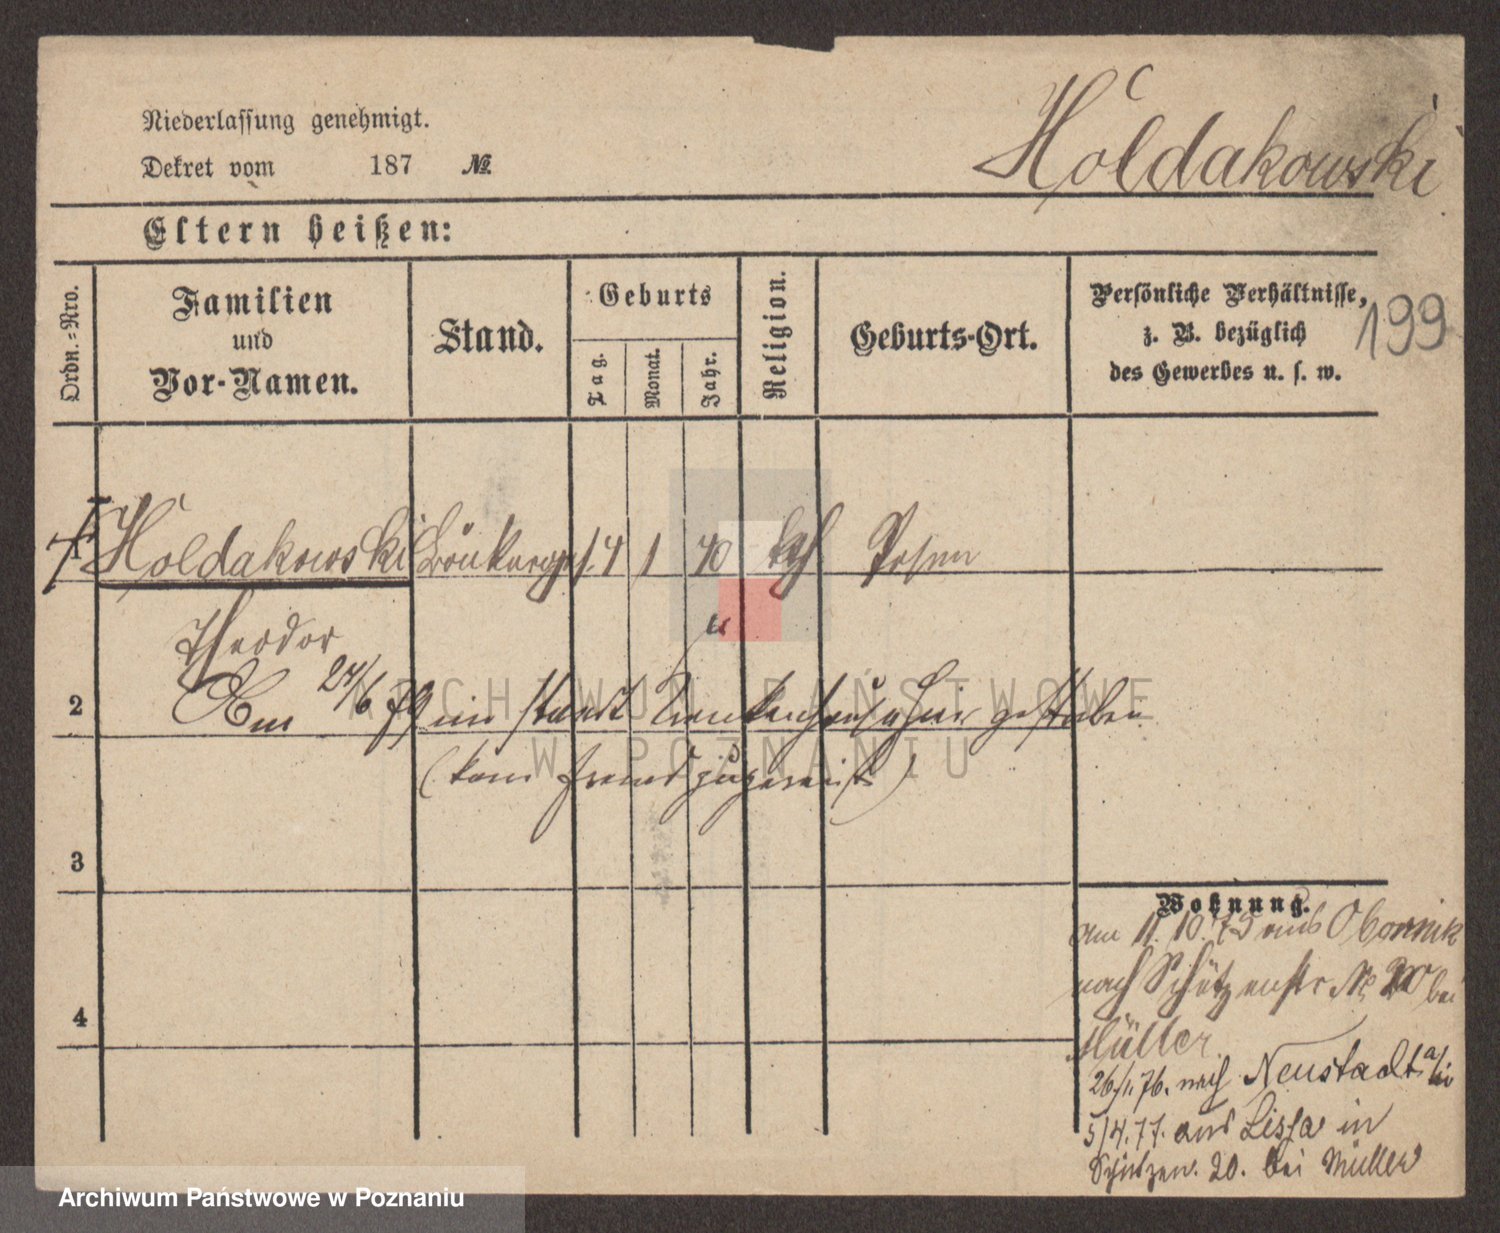 Niederlassung genehmigt.
Dekret vom 187 №
Hóldakowski
Eltern heißen:
Ordn.=Nro.
Familien
und
Vor-Namen.
Stand.
Geburts
Tag.
Monat.
Jahr.
Religion.
Geburts-Ort.
Persönliche Verhältnisse,
z. B. bezüglich
des Gewerbes u. s. w.
199
1 Hóldakowski 4 1 40 kth Posen
Theodor
2 Am 24/6 79 im staedt Krankenhause hier gestorben
(kam fremd zugereist)
3
4
Wohnung.
am 11. 10. 75 aus Obornik
nach Schützenstr № 20 bei
Müller
26/1. 76. nach Neustadt a/
5/4. 77. aus Lissa in
Schützen. 20. bei Müller
ARCHIWUM PAŃSTWOWE
W POZNANIU
Archiwum Państwowe w Poznaniu